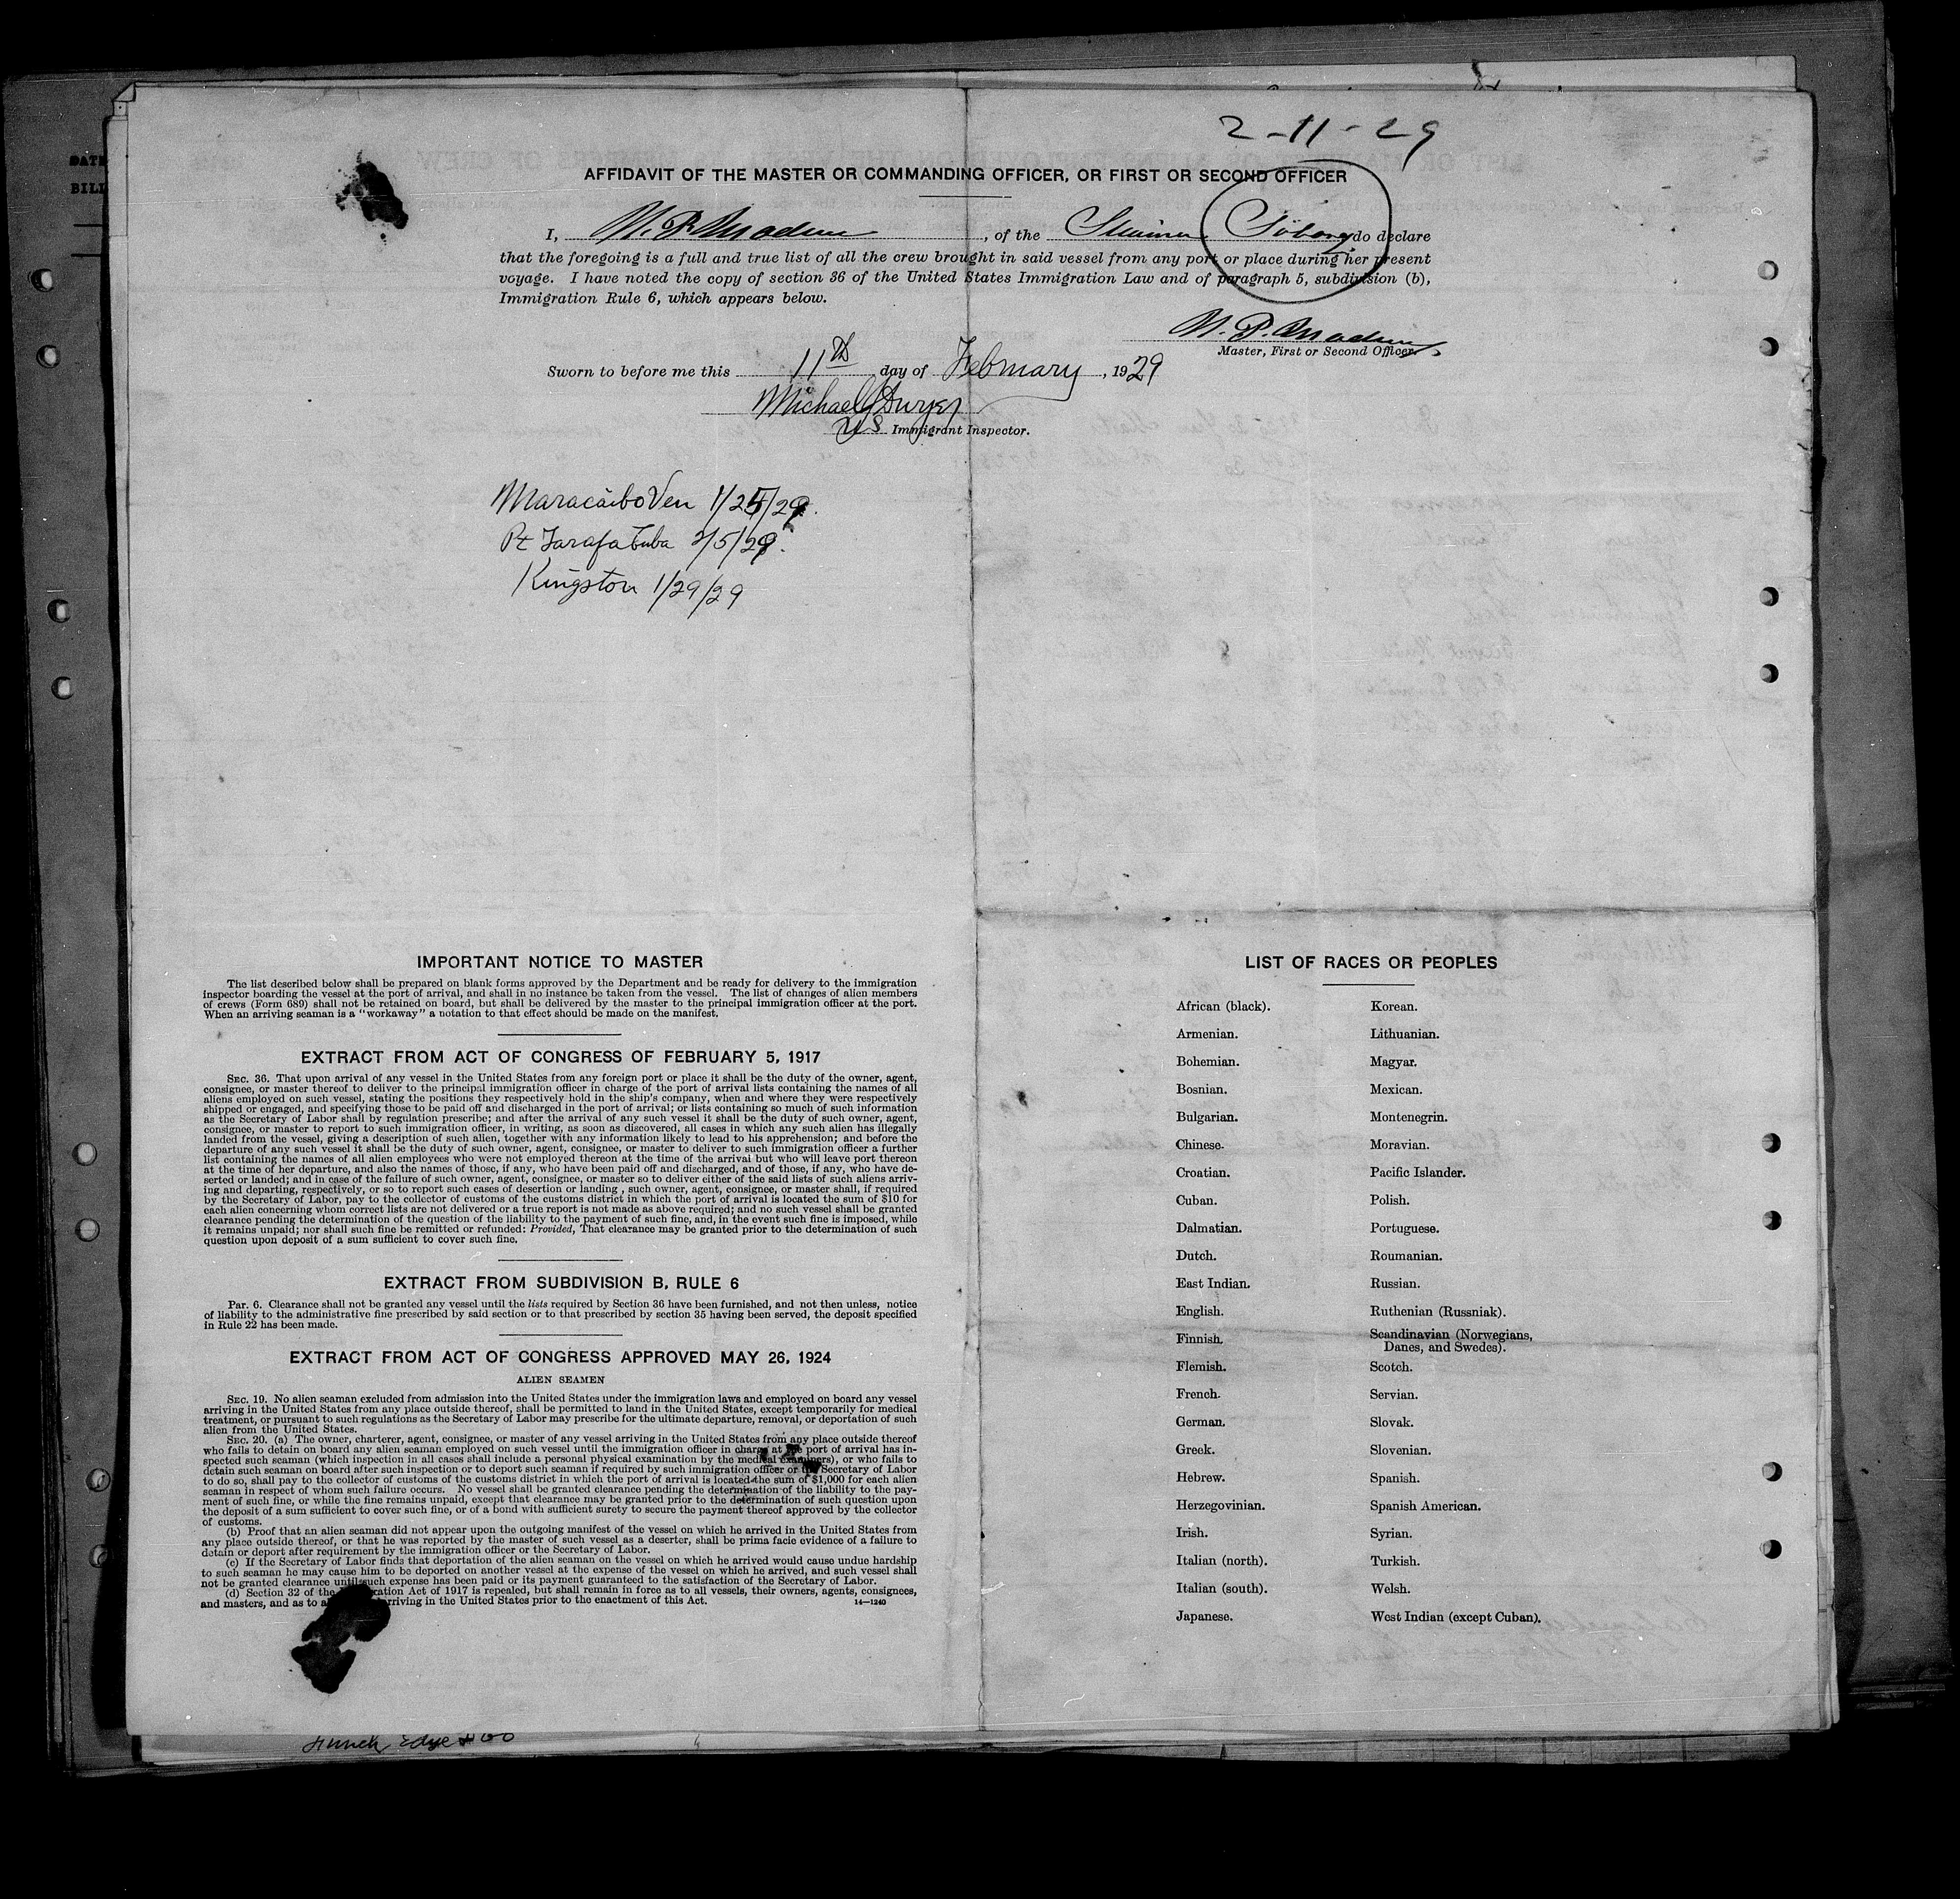 2-11-29
AFFIDAVIT OF THE MASTER OR COMMANDING OFFICER, OR FIRST OR SECOND OFFICER
I, , of the do declare
that the foregoing is a full and true list of all the crew brought in said vessel from any port or place during her present
voyage. I have noted the copy of section 36 of the United States Immigration Law and of paragraph 5, subdivision (b),
Immigration Rule 6, which appears below.
Master, First or Second Officer.
Sworn to before me this 11th day of February, 1929
Michael J Dwyer
US Immigrant Inspector.
Maracaibo Ven 1/25/29.
Pt Tarafa Cuba 2/5/29.
Kingston 1/29/29
IMPORTANT NOTICE TO MASTER
The list described below shall be prepared on blank forms approved by the Department and be ready for delivery to the immigration
inspector boarding the vessel at the port of arrival, and shall in no instance be taken from the vessel. The list of changes of alien members
of crews (Form 689) shall not be retained on board, but shall be delivered by the master to the principal immigration officer at the port.
When an arriving seaman is a "workaway" a notation to that effect should be made on the manifest.
EXTRACT FROM ACT OF CONGRESS OF FEBRUARY 5, 1917
SEC. 36. That upon arrival of any vessel in the United States from any foreign port or place it shall be the duty of the owner, agent,
consignee, or master thereof to deliver to the principal immigration officer in charge of the port of arrival lists containing the names of all
aliens employed on such vessel, stating the positions they respectively hold in the ship's company, when and where they were respectively
shipped or engaged, and specifying those to be paid off and discharged in the port of arrival; or lists containing so much of such information
as the Secretary of Labor shall by regulation prescribe; and after the arrival of any such vessel it shall be the duty of such owner, agent,
consignee, or master to report to such immigration officer, in writing, as soon as discovered, all cases in which any such alien has illegally
landed from the vessel, giving a description of such alien, together with any information likely to lead to his apprehension; and before the
departure of any such vessel it shall be the duty of such owner, agent, consignee, or master to deliver to such immigration officer a further
list containing the names of all alien employees who were not employed thereon at the time of the arrival but who will leave port thereon
at the time of her departure, and also the names of those, if any, who have been paid off and discharged, and of those, if any, who have de-
serted or landed; and in case of the failure of such owner, agent, consignee, or master so to deliver either of the said lists of such aliens arriv-
ing and departing, respectively, or so to report such cases of desertion or landing , such owner, agent, consignee, or master shall, if required
by the Secretary of Labor, pay to the collector of customs of the customs district in which the port of arrival is located the sum of $10 for
each alien concerning whom correct lists are not delivered or a true report is not made as above required; and no such vessel shall be granted
clearance pending the determination of the question of the liability to the payment of such fine, and, in the event such fine is imposed, while
it remains unpaid; nor shall such fine be remitted or refunded: Provided, That clearance may be granted prior to the determination of such
question upon deposit of a sum sufficient to cover such fine.
EXTRACT FROM SUBDIVISION B, RULE 6
Par. 6. Clearance shall not be granted any vessel until the lists required by Section 36 have been furnished, and not then unless, notice
of liability to the administrative fine prescribed by said section or to that prescribed by section 35 having been served, the deposit specified
in Rule 22 has been made.
EXTRACT FROM ACT OF CONGRESS APPROVED MAY 26, 1924
ALIEN SEAMEN
SEC. 19. No alien seaman excluded from admission into the United States under the immigration laws and employed on board any vessel
arriving in the United States from any place outside thereof, shall be permitted to land in the United States, except temporarily for medical
treatment, or pursuant to such regulations as the Secretary of Labor may prescribe for the ultimate departure, removal, or deportation of such
alien from the United States.
SEC. 20. (a) The owner, charterer, agent, consignee, or master of any vessel arriving in the United States from any place outside thereof
who fails to detain on board any alien seaman employed on such vessel until the immigration officer in charge at the port of arrival has in-
spected such seaman (which inspection in all cases shall include a personal physical examination by the medical examiners), or who fails to
detain such seaman on board after such inspection or to deport such seaman if required by such immigration officer or the Secretary of Labor
to do so, shall pay to the collector of customs of the customs district in which the port of arrival is located the sum of $1,000 for each alien
seaman in respect of whom such failure occurs. No vessel shall be granted clearance pending the determination of the liability to the pay-
ment of such fine, or while the fine remains unpaid, except that clearance may be granted prior to the determination of such question upon
the deposit of a sum sufficient to cover such fine, or of a bond with sufficient surety to secure the payment thereof approved by the collector
of customs.
(b) Proof that an alien seaman did not appear upon the outgoing manifest of the vessel on which he arrived in the United States from
any place outside thereof, or that he was reported by the master of such vessel as a deserter, shall be prima facie evidence of a failure to
detain or deport after requirement by the immigration officer or the Secretary of Labor.
(c) If the Secretary of Labor finds that deportation of the alien seaman on the vessel on which he arrived would cause undue hardship
to such seaman he may cause him to be deported on another vessel at the expense of the vessel on which he arrived, and such vessel shall
not be granted clearance until such expense has been paid or its payment guaranteed to the satisfaction of the Secretary of Labor.
(d) Section 32 of the Act of 1917 is repealed, but shall remain in force as to all vessels, their owners, agents, consignees,
and masters, and as to arriving in the United States prior to the enactment of this Act.
14—1240
LIST OF RACES OR PEOPLES
African (black).
Armenian.
Bohemian.
Bosnian.
Bulgarian.
Chinese.
Croatian.
Cuban.
Dalmatian.
Dutch.
East Indian.
English.
Finnish.
Flemish.
French.
German.
Greek.
Hebrew.
Herzegovinian.
Irish.
Italian (north).
Italian (south).
Japanese.
Korean.
Lithuanian.
Magyar.
Mexican.
Montenegrin.
Moravian.
Pacific Islander.
Polish.
Portuguese.
Roumanian.
Russian.
Ruthenian (Russniak).
Scandinavian (Norwegians,
Danes, and Swedes).
Scotch.
Servian.
Slovak.
Slovenian.
Spanish.
Spanish American.
Syrian.
Turkish.
Welsh.
West Indian (except Cuban).